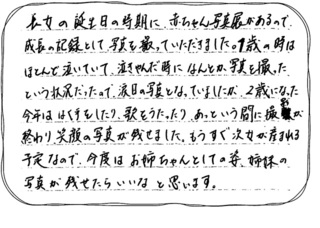 長女の誕生日の時期に、赤ちゃん写真展があるので、
成長の記録として写真を撮っていただきました。1歳の時は
ほとんど泣いていて、泣きやんだ時になんとか写真を撮った
という状況だったので、涙目の写真となっていましたが、2歳になった
今年ははしをしたり、歌をうたったり、あっという間に撮影が
終わり笑顔の写真が残せました。もうすぐ次女が産まれる
予定なので、今度はお姉ちゃんとしての姿、姉妹の
写真が残せたらいいなと思います。